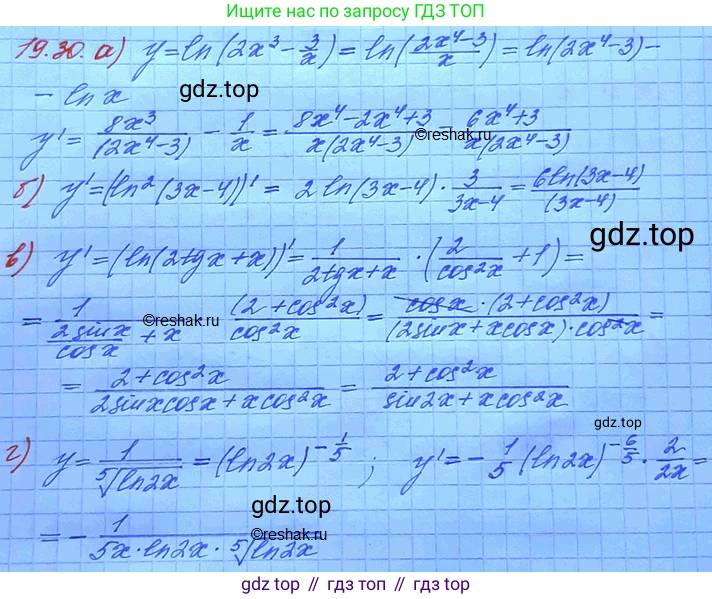 Ищите нас по запросу ГДЗ ТОП
19.30. а) y=ln(2x³-3/x)=ln((2x⁴-3)/x)=ln(2x⁴-3)-
gdz.top
- ln x
y'= 8x³/(2x⁴-3) - 1/x = (8x⁴-2x⁴+3)/(x(2x⁴-3)) = (6x⁴+3)/(x(2x⁴-3))
©reshak.ru
б) y'=(ln²(3x-4))' = 2ln(3x-4)·3/(3x-4) = 6ln(3x-4)/(3x-4)
gdz.top
в) y'=(ln(2tgx+x))'= 1/(2tgx+x) ·(2/cos²x +1)=
= 1/(2sinx/cosx + x) (2+cos²x)/cos²x = cosx·(2+cos²x)/((2sinx+xcosx)·cos²x) =
©reshak.ru
= (2+cos²x)/(2sinxcosx+xcos²x) = (2+cos²x)/(sin2x+xcos²x)
gdz.top
г) y=1/⁵√ln2x =(ln2x)^(-1/5) ; y'=-1/5(ln2x)^(-6/5)·2/2x=
gdz.top
= - 1/(5x·ln2x·⁵√ln2x)
©reshak.ru
gdz top // гдз топ // gdz.top